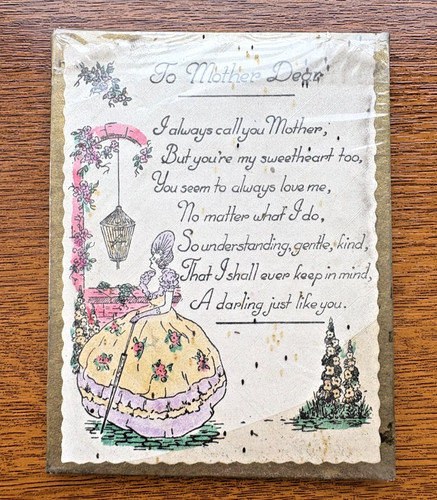 To Mother Dear
I always call you Mother,
But you're my sweetheart too,
You seem to always love me,
No matter what I do,
So understanding, gentle, kind,
That I shall ever keep in mind,
A darling just like you.